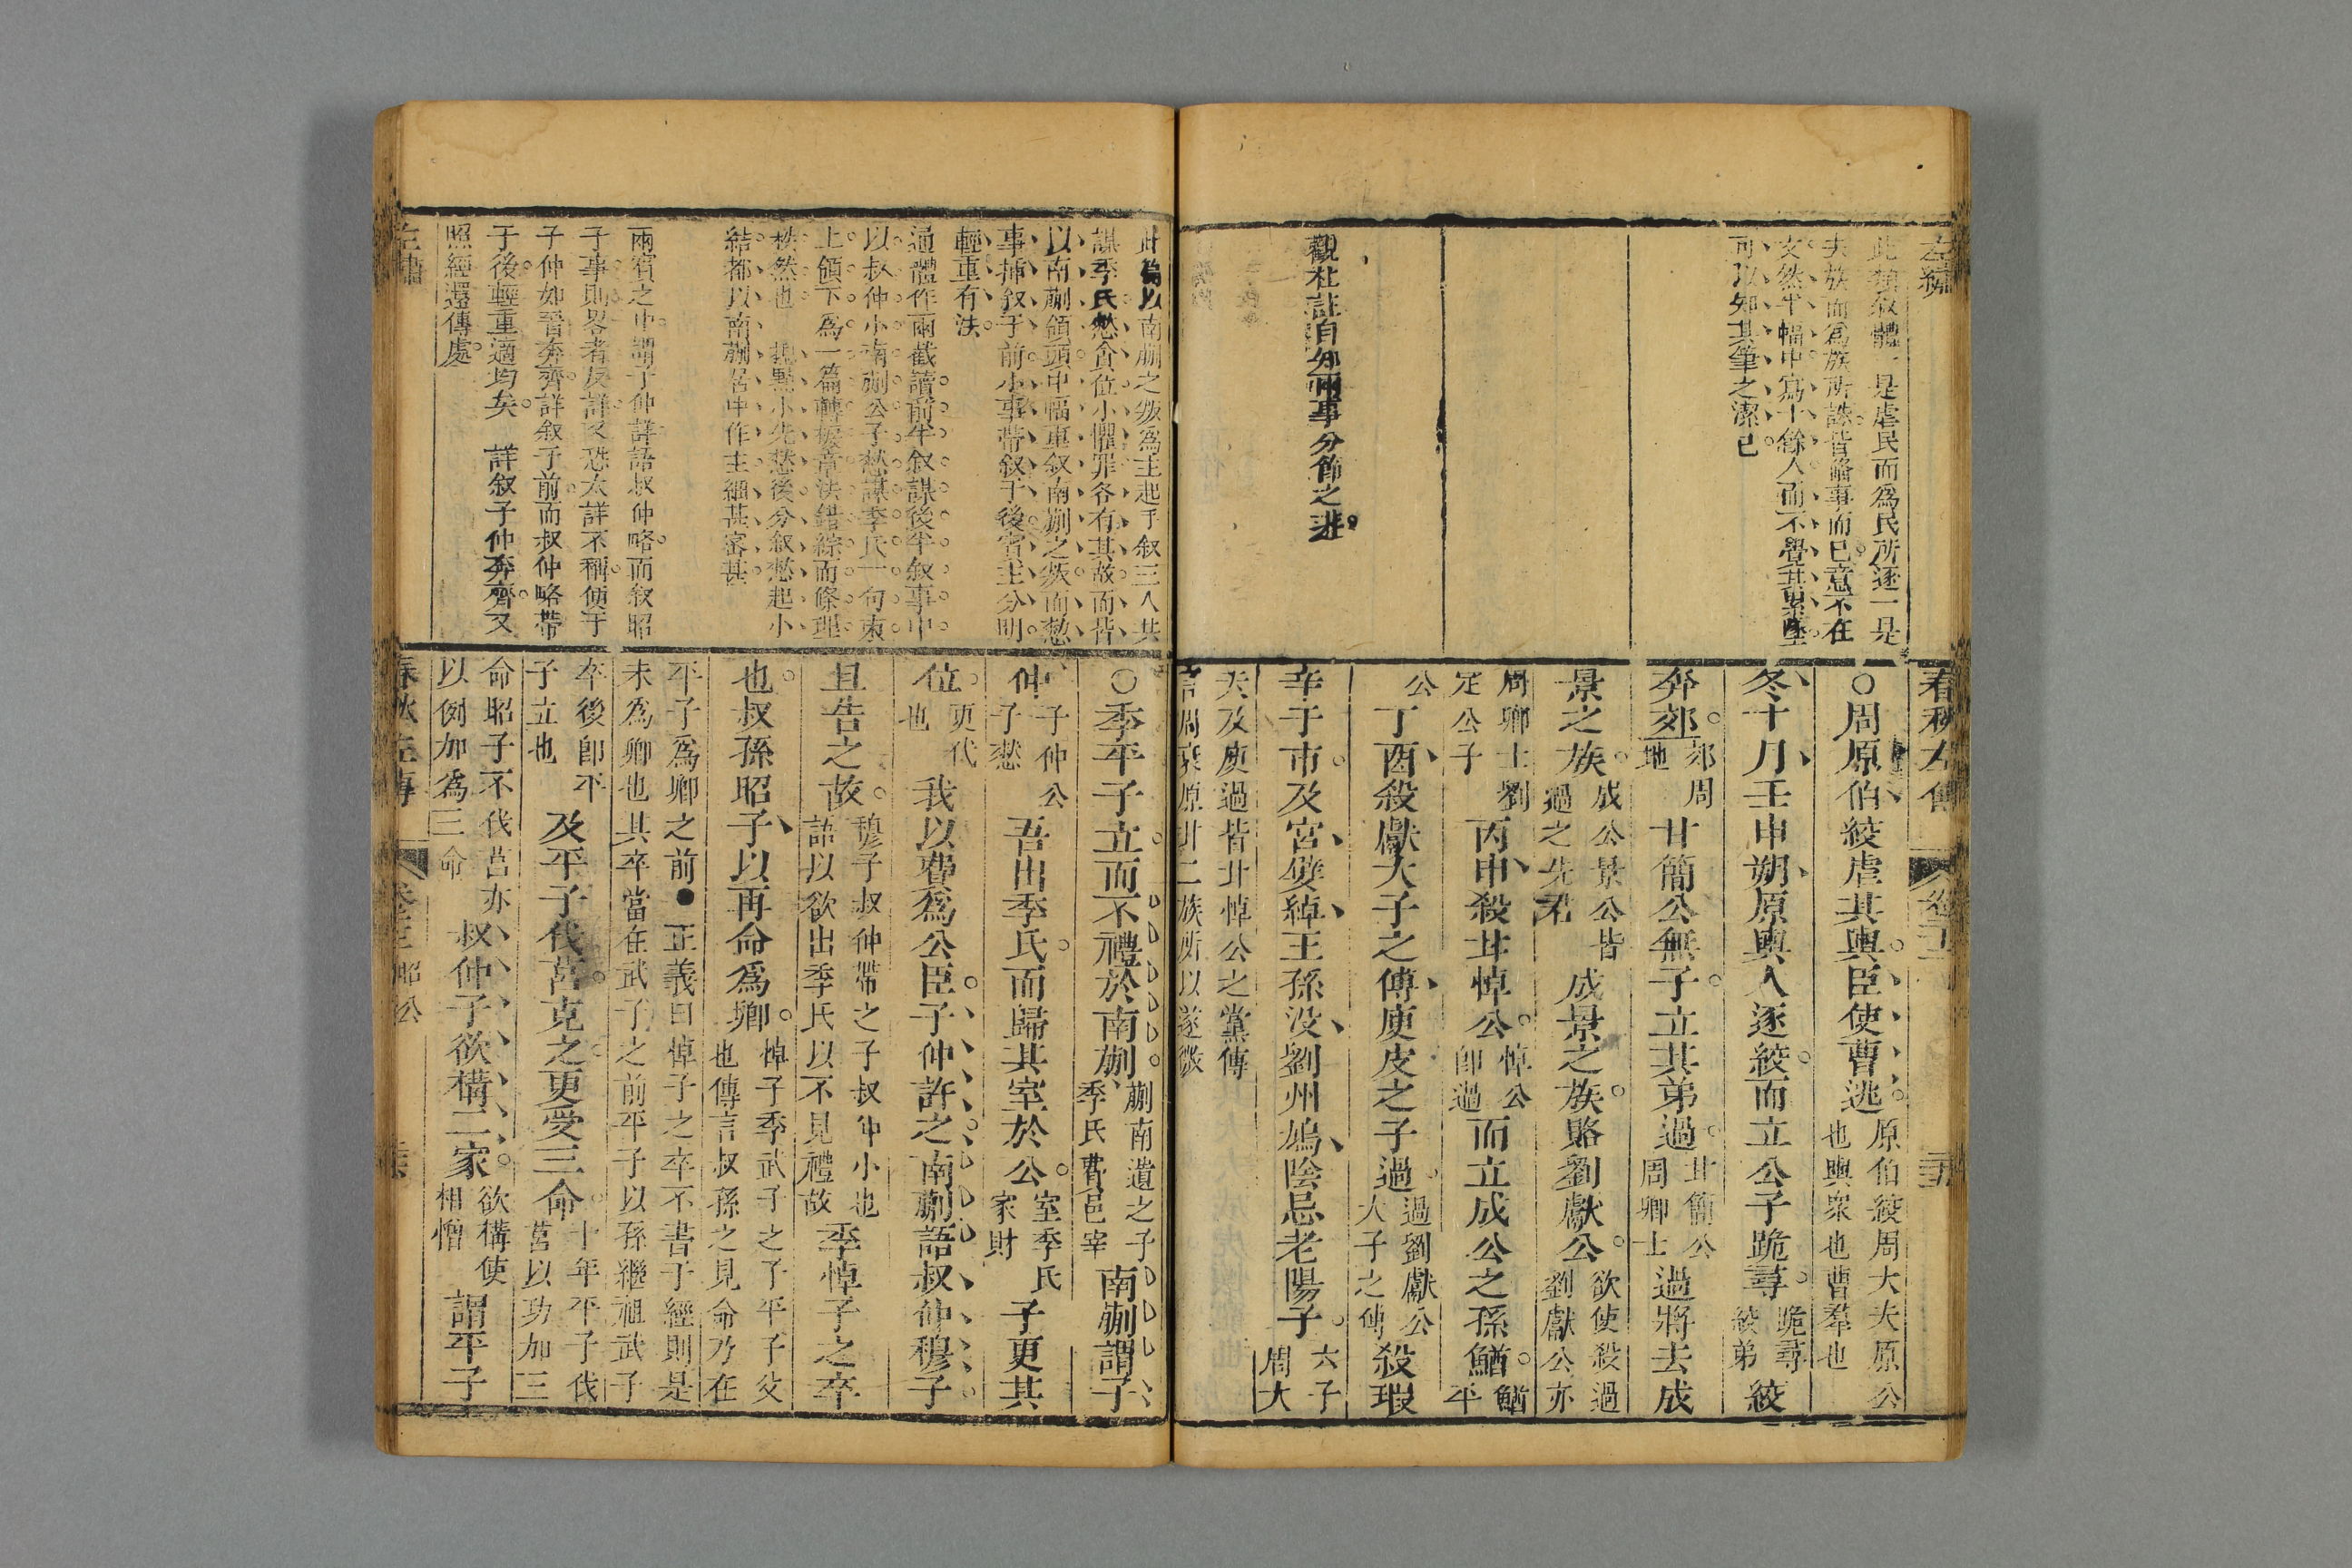 左繡
此類敘體一是虐民而爲民所逐一是
去族而爲族所誅皆略事而已意不在
文然半幅中寫十餘人而不覺其累墜
可以知其筆之潔已
觀杜註自知兩事分節之非
春秋左傳
○周原伯絞虐其輿臣使曹逃原伯絞周大夫原公也輿衆也曹羣也
冬十月壬申朔原輿人逐絞而立公子跪尋跪尋絞弟絞
奔郊郊周地甘簡公無子立其弟過甘簡公周卿士過將去成
景之族成公景公皆過之先君成景之族賂劉獻公欲使殺過劉獻公亦
周卿士劉定公子丙申殺甘悼公悼公卽過而立成公之孫鰌鰌平
公丁酉殺獻大子之傅庾皮之子過過劉獻公大子之傅殺瑕
辛于市及宮嬖綽王孫沒劉州鳩陰忌老陽子六子周大
夫及庾過皆甘悼公之黨傳言周衰原甘二族所以遂微
此篇以南蒯之叛爲主起手敘三人共
謀季氏憗貪位小懼罪各有其故而皆
以南蒯領頭中幅重敘南蒯之叛而憗
事插敘于前小事帶敘于後賓主分明
輕重有法
通體作兩截讀前半敘謀後半敘事中
以叔仲小南蒯公子憗謀季氏一句束
上領下爲一篇轉捩章法錯綜而條理
秩然也 提點小先憗後分敘憗起小
結都以南蒯居中作主細甚密甚
兩賓之中謂子仲詳語叔仲略而敘昭
子事則畧者反詳又恐太詳不稱便于
子仲如晉奔齊詳敘于前而叔仲略帶
于後輕重適均矣 詳敘子仲奔齊又
照經還傳處
○季平子立而不禮於南蒯蒯南遺之子季氏費邑宰南蒯謂子
仲子仲公子憗吾出季氏而歸其室於公室季氏家財子更其
位更代也我以費爲公臣子仲許之南蒯語叔仲穆子
且告之故穆子叔仲帶之子叔仲小也語以欲出季氏以不見禮故季悼子之卒
也叔孫昭子以再命爲卿悼子季武子之子平子父也傳言叔孫之見命乃在
平子爲卿之前●正義曰悼子之卒不書于經則是未爲卿也其卒當在武子之前平子以孫繼祖武子
卒後卽平子立也及平子伐莒克之更受三命十年平子伐莒以功加三
命昭子不伐莒亦以例加爲三命叔仲子欲構二家欲構使相憎謂平子
左繡
春秋左傳
昭公